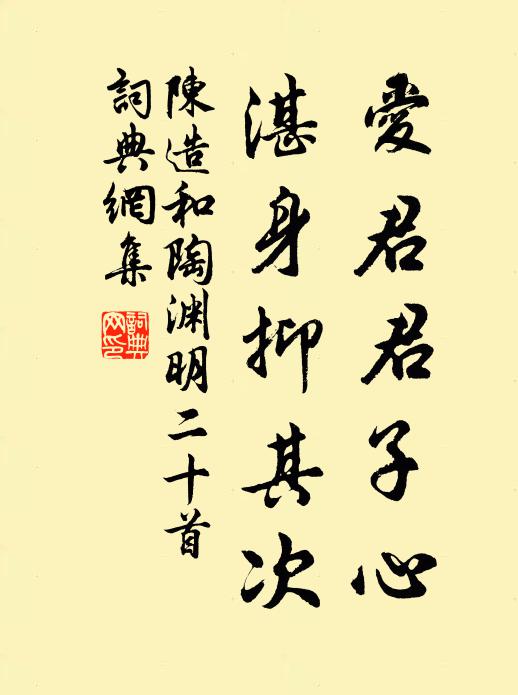 愛君君子心
湛身抑其次
陳造和陶淵明二十首
詞典網集
詞典
网印